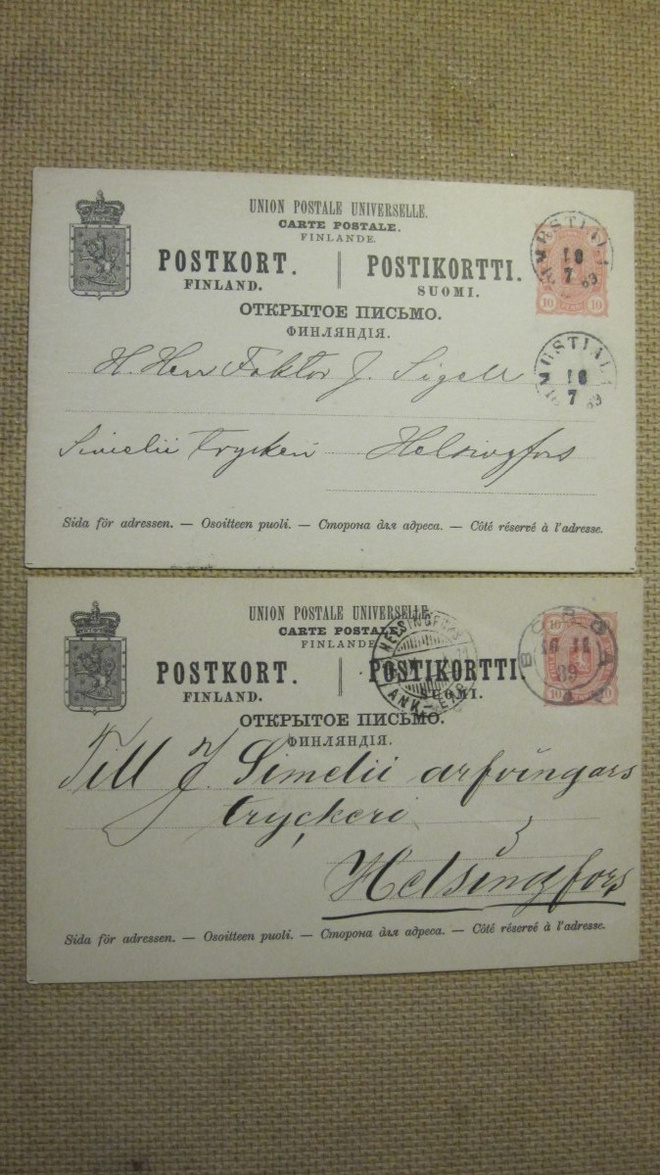 UNION POSTALE UNIVERSELLE.
CARTE POSTALE.
FINLANDE.
POSTKORT. | POSTIKORTTI.
FINLAND. SUOMI.
ОТКРЫТОЕ ПИСЬМО.
ФИНЛЯНДІЯ.
MUSTIALA
10
7
89
10 10
MUSTIALA
10
7
89
H. Herr Faktor J. Sigell
Simelii Tryckeri Helsingfors
Sida för adressen. — Osoitteen puoli. — Сторона для адреса. — Côté réservé à l'adresse.
UNION POSTALE UNIVERSELLE.
CARTE POSTALE.
FINLANDE.
POSTKORT. | POSTIKORTTI.
FINLAND. SUOMI.
ОТКРЫТОЕ ПИСЬМО.
ФИНЛЯНДІЯ.
HELSINGFORS
ANK
BORGÅ
11
89
10
10 10
Till J. Simelii arfvingars
tryckeri
Helsingfors
Sida för adressen. — Osoitteen puoli. — Сторона для адреса. — Côté réservé à l'adresse.